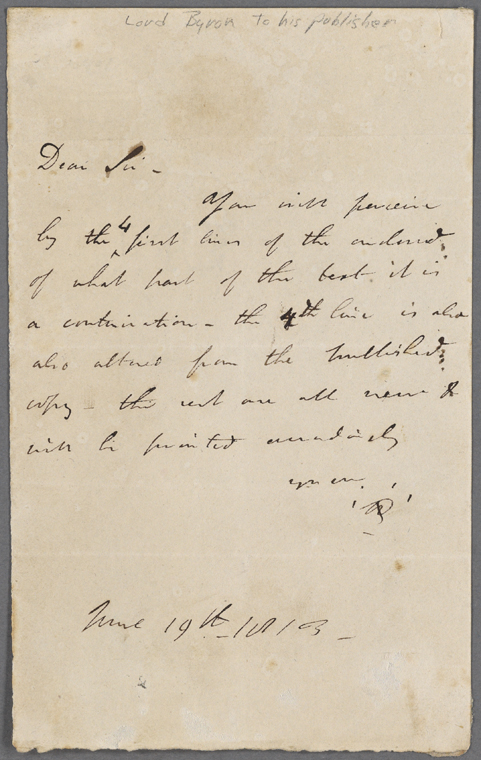 Lord Byron to his publisher
Dear Sir -
You will perceive
by the 4 first lines of the enclosed
of what part of the text it is
a continuation - the 4th line is also
also altered from the published
copy - the rest are all new &
will be printed accordingly
yrs
B
June 19th 1813 -